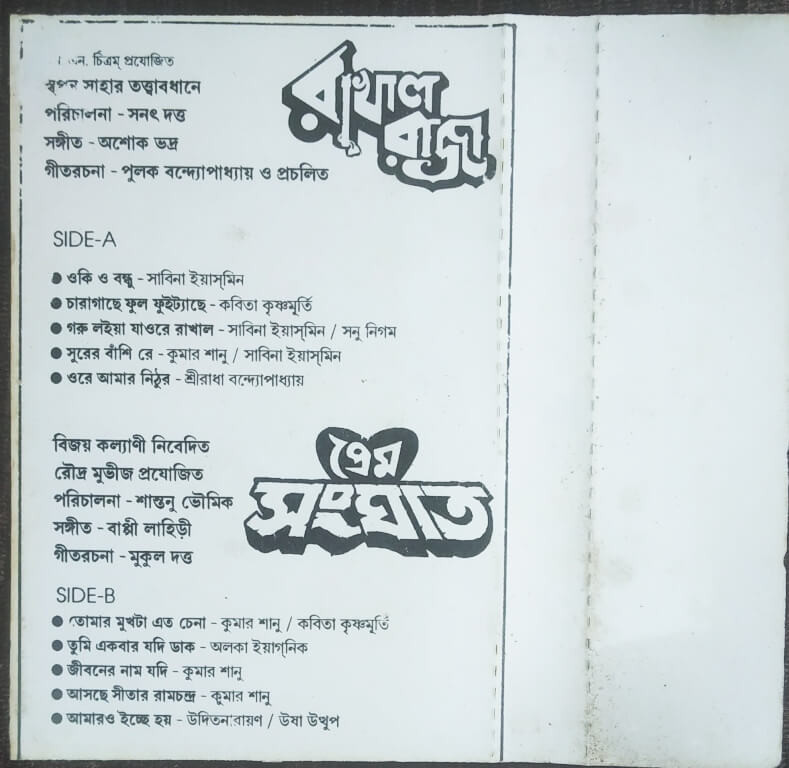 এন. চিত্রম্ প্রযোজিত
স্বপন সাহার তত্ত্বাবধানে
পরিচালনা - সনৎ দত্ত
সঙ্গীত - অশোক ভদ্র
গীতরচনা - পুলক বন্দ্যোপাধ্যায় ও প্রচলিত
রাখাল
রাজা
SIDE-A
● ওকি ও বন্ধু - সাবিনা ইয়াস্‌মিন
● চারাগাছে ফুল ফুইট্যাছে - কবিতা কৃষ্ণমূর্তি
● গরু লইয়া যাওরে রাখাল - সাবিনা ইয়াস্‌মিন / সনু নিগম
● সুরের বাঁশি রে - কুমার শানু / সাবিনা ইয়াস্‌মিন
● ওরে আমার নিঠুর - শ্রীরাধা বন্দ্যোপাধ্যায়
বিজয় কল্যাণী নিবেদিত
রৌদ্র মুভীজ প্রযোজিত
পরিচালনা - শান্তনু ভৌমিক
সঙ্গীত - বাপ্পী লাহিড়ী
গীতরচনা - মুকুল দত্ত
প্রেম
সংঘাত
SIDE-B
● তোমার মুখটা এত চেনা - কুমার শানু / কবিতা কৃষ্ণমূর্তি
● তুমি একবার যদি ডাক - অলকা ইয়াগ্‌নিক
● জীবনের নাম যদি - কুমার শানু
● আসছে সীতার রামচন্দ্র - কুমার শানু
● আমারও ইচ্ছে হয় - উদিতনারায়ণ / উষা উত্থুপ